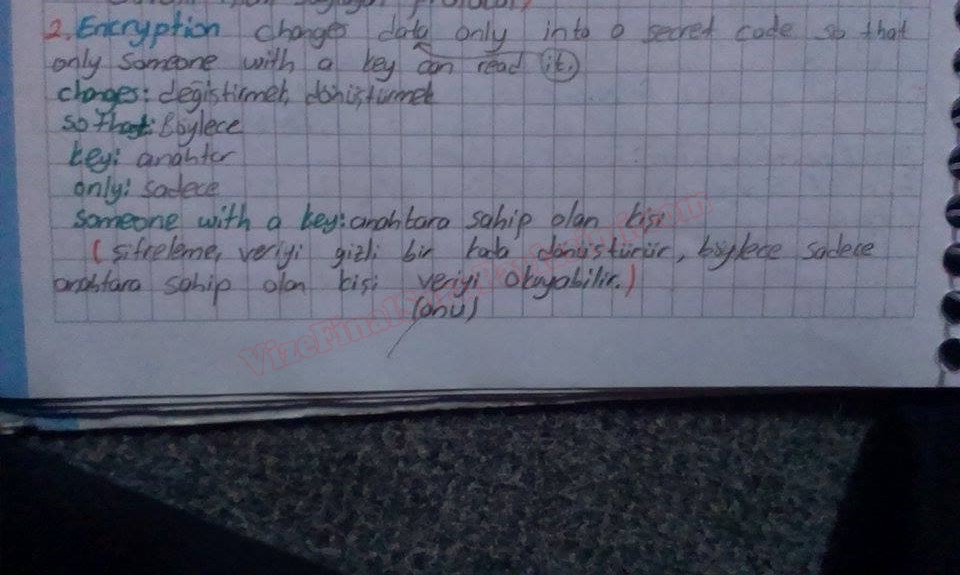 2. Encryption changes data only into a secret code so that
only someone with a key can read it.
changes: değiştirmek, dönüştürmek
so that: Böylece
key: anahtar
only: sadece
someone with a key: anahtara sahip olan kişi
(şifreleme, veriyi gizli bir koda dönüştürür, böylece sadece
anahtara sahip olan kişi veriyi okuyabilir.)
(onu)